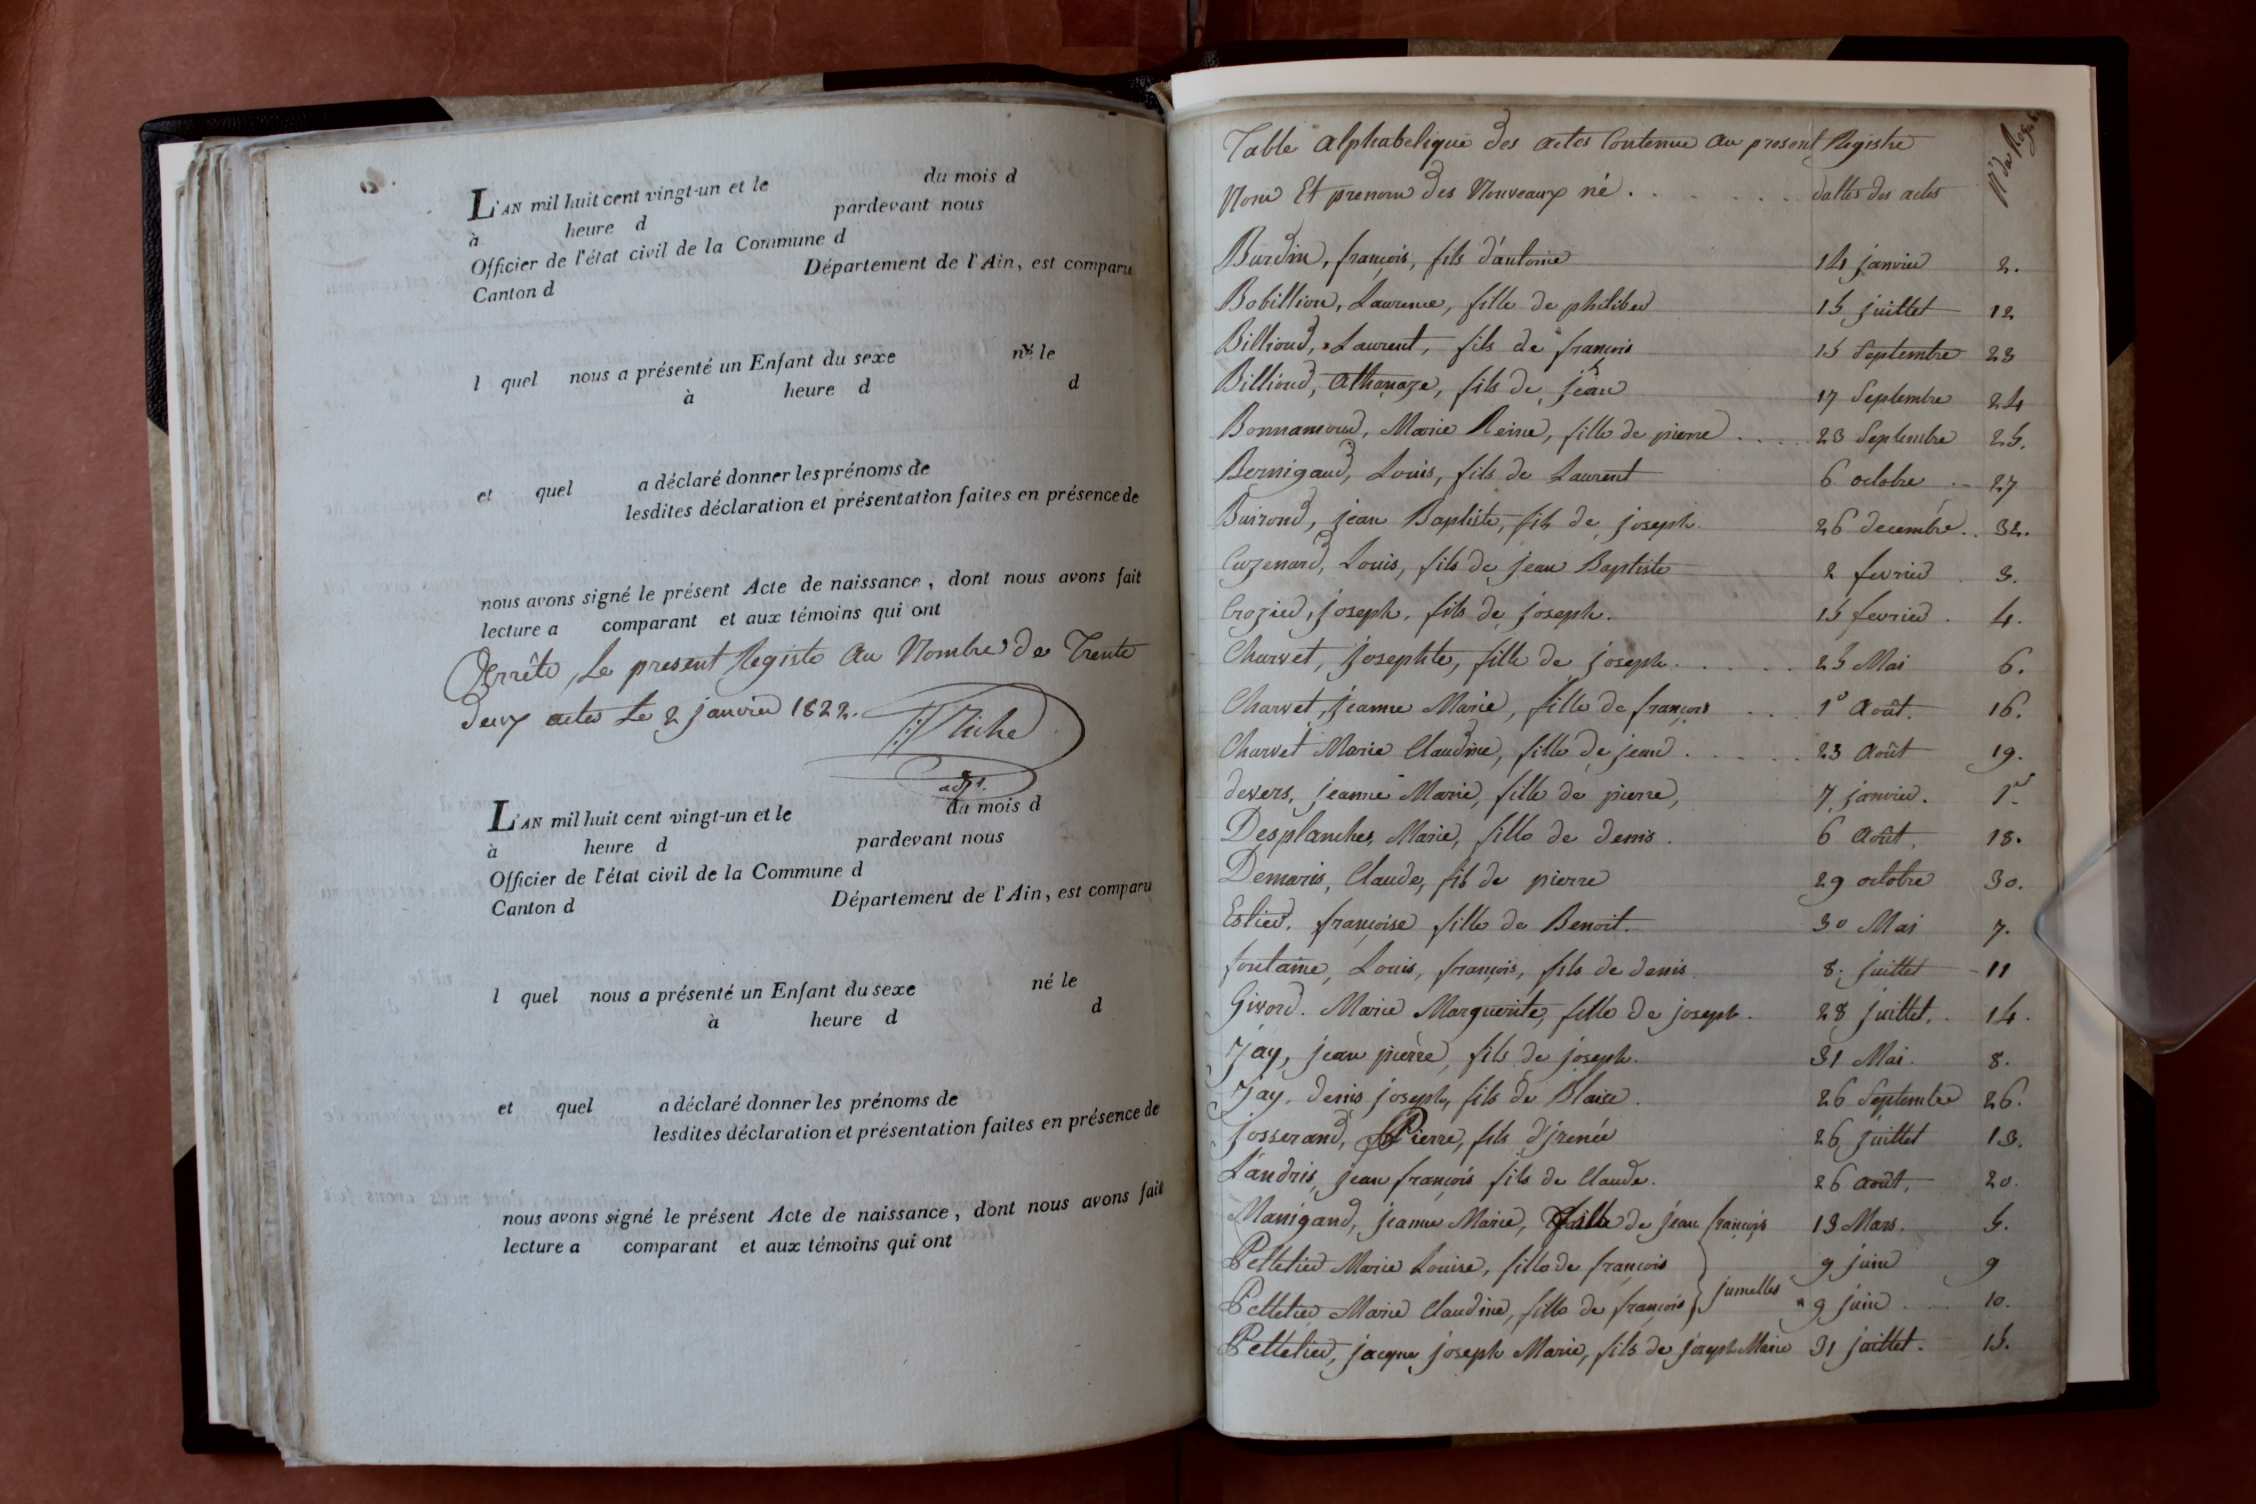 du mois d
L'AN mil huit cent vingt-un et le
pardevant nous
à heure d
Officier de l'état civil de la Commune d
Département de l'Ain, est comparu
Canton d
l quel nous a présenté un Enfant du sexe né le
à heure d d
et quel a déclaré donner les prénoms de
lesdites déclaration et présentation faites en présence de
nous avons signé le présent Acte de naissance, dont nous avons fait
lecture a comparant et aux témoins qui ont
Arrêté Le present Registe au Nombre de Trente
deux actes Le 2 janvier 1822.
adjt.
L'AN mil huit cent vingt-un et le du mois d
à heure d pardevant nous
Officier de l'état civil de la Commune d
Canton d Département de l'Ain, est comparu
l quel nous a présenté un Enfant du sexe né le
à heure d d
et quel a déclaré donner les prénoms de
lesdites déclaration et présentation faites en présence de
nous avons signé le présent Acte de naissance, dont nous avons fait
lecture a comparant et aux témoins qui ont
Table alphabetique des actes Contenue au present Registre
Nom Et prenom des Nouveaux né . . . . . . dattes des actes N° du Reg.
Burdin, françois, fils d'antoine 14 janvier 2.
Bobillion, Laurence, fille de philiber 15 juillet 12
Billioud, Laurent, fils de françois 15 Septembre 23
Billioud, Athanaze, fils de jean 17 Septembre 24
Bonnamour, Marie Reine, fille de pierre . . . . 23 Septembre 25.
Bernigaud, Louis, fils de Laurent 6 octobre . 27
Buirond, jean Baptiste, fils de joseph 26 decembre . . 32.
Cuzenard, Louis, fils de jean Baptiste 2 fevrier . 3.
Crozier, joseph, fils de joseph. 15 fevrier . 4.
Charvet, josephte, fille de joseph . . . . . 25 Mai 6.
Charvet, jeanne Marie, fille de françois . . . 1er Août. 16.
Charvet Marie Claudine, fille de jean . . . . . 23 Août 19.
devers, jeanne Marie, fille de pierre, 7 janvier. 1er
Desplanches, Marie, fille de denis. 6 Août, 18.
Demaris, Claude, fils de pierre 29 octobre 30.
Eslier, françoise fille de Benoit. 30 Mai 7.
fontaine, Louis, françois, fils de denis 8 juillet 11
Givord. Marie Marguerite, fille de joseph. 28 juillet. 14.
Jay, jean pierre, fils de joseph. 31 Mai 8.
Jay, denis joseph, fils de Blaise. 26 Septembre 26.
Josserand, Pierre, fils d'jrenée 26 juillet 13.
Landris, jean françois fils de Claude. 26 août, 20.
Manigand, jeanne Marie, fille de jean françois 13 Mars. 5.
Pelletier Marie Louise, fille de françois 9 juin 9
Pelletier Marie Claudine, fille de françois } jumelles 9 juin . . . 10.
Pelletier, jacque joseph Marie, fils de joseph Marie 31 juillet. 15.